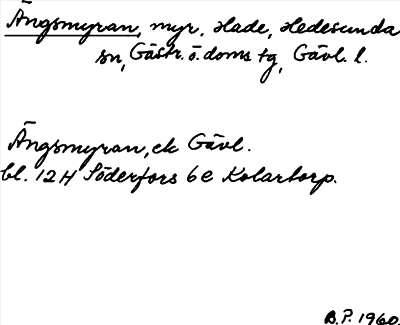 Ängsmyran, myr, Hade, Hedesunda
sn, Gästr. ö. doms tg, Gävl. l.
Ängsmyran, ek Gävl.
bl. 12H Söderfors 6e Kolartorp.
B.P. 1960.